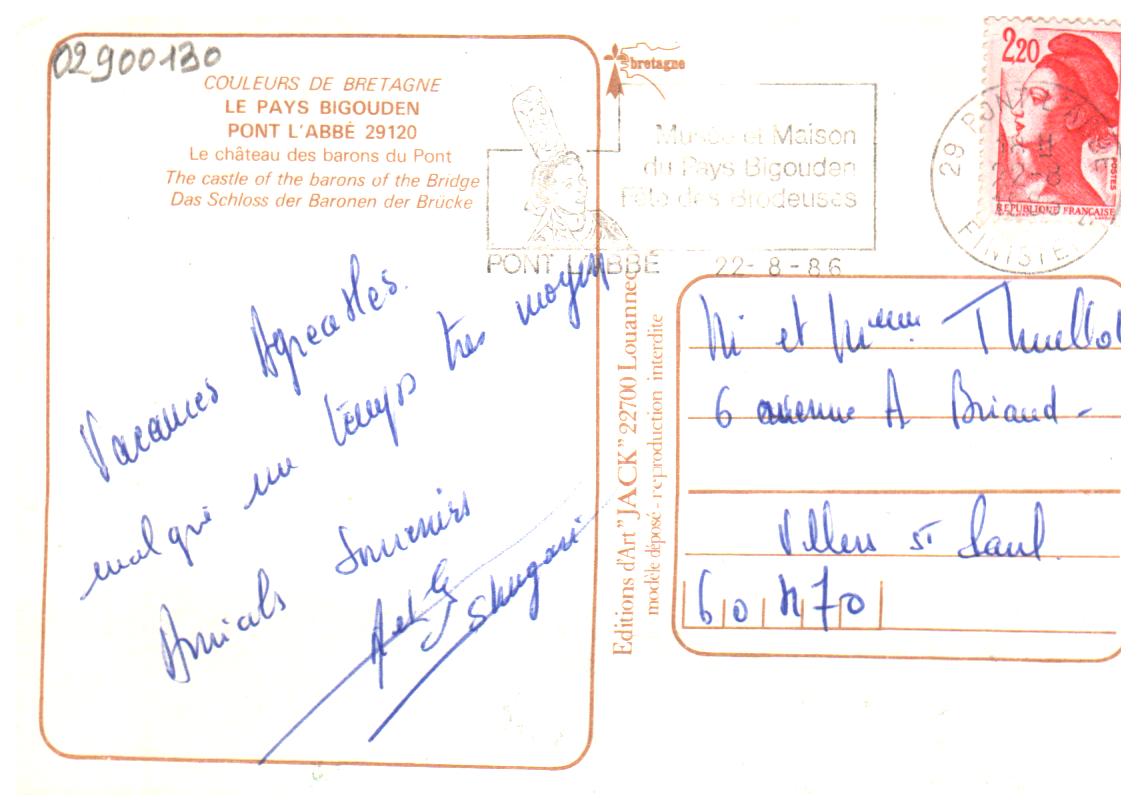 02900130
COULEURS DE BRETAGNE
LE PAYS BIGOUDEN
PONT L'ABBÉ 29120
Le château des barons du Pont
The castle of the barons of the Bridge
Das Schloss der Baronen der Brücke
Vacances Agréables.
malgré un temps très moyen
Amicals Souvenirs
bretagne
Musée et Maison
du Pays Bigouden
Fête des Brodeuses
PONT L'ABBÉ 22-8-86
Editions d'Art "JACK" 22700 Louannec
modèle déposé - reproduction interdite
2,20
POSTES
REPUBLIQUE FRANÇAISE
29 PONT L'ABBE
22-8
FINISTE
M et Mme
6 avenue A Briand -
Villers St Paul.
60870